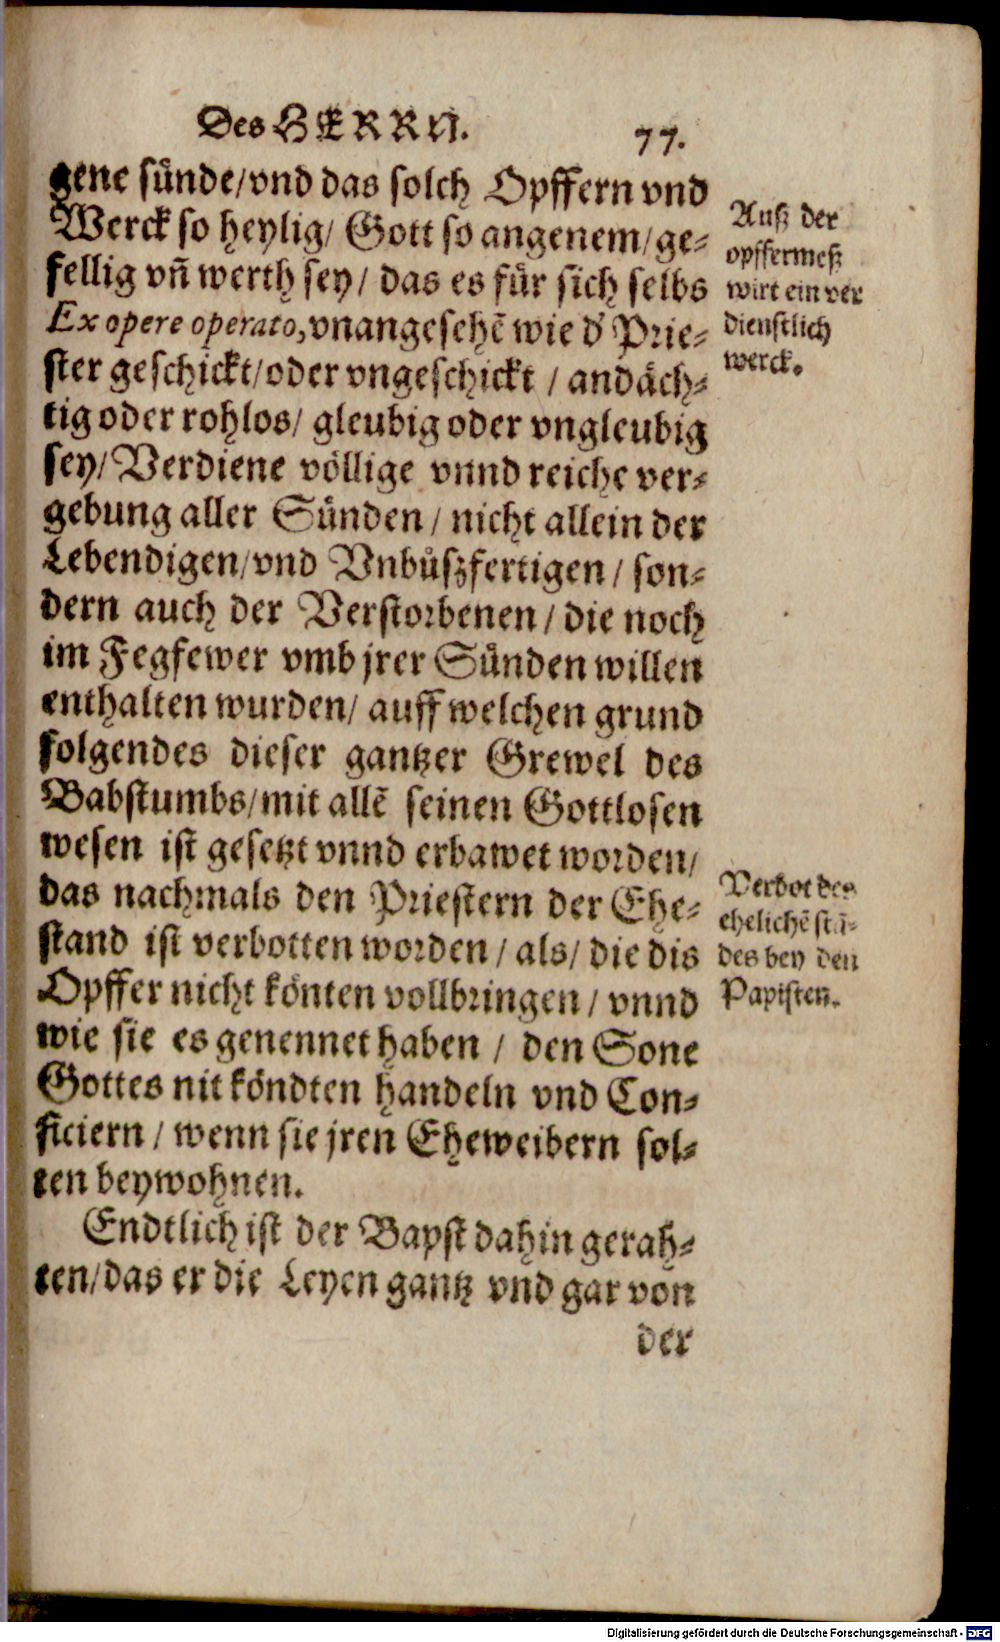 Des HERRN.
77.
gene sünde/vnd das solch Opffern vnd
Werck so heylig/ Gott so angenem/ge⸗
fellig vñ werth sey/ das es für sich selbs
Ex opere operato, vnangesehẽ wie d' Prie⸗
ster geschickt/oder vngeschickt / andäch⸗
tig oder rohlos/ gleubig oder vngleubig
sey/Verdiene völlige vnnd reiche ver⸗
gebung aller Sünden / nicht allein der
Lebendigen/vnd Vnbůszfertigen / son⸗
dern auch der Verstorbenen / die noch
im Fegfewer vmb jrer Sünden willen
enthalten wurden/ auff welchen grund
folgendes dieser gantzer Grewel des
Babstumbs/mit allẽ seinen Gottlosen
wesen ist gesetzt vnnd erbawet worden/
das nachmals den Priestern der Ehe⸗
stand ist verbotten worden / als/ die dis
Opffer nicht könten vollbringen / vnnd
wie sie es genennet haben / den Sone
Gottes nit köndten handeln vnd Con⸗
ficiern / wenn sie jren Eheweibern sol⸗
ten beywohnen.
Endtlich ist der Bapst dahin gerah⸗
ten/das er die Leyen gantz vnd gar von
der
Auß der
opffermeß
wirt ein ver
dienstlich
werck.
Verbot des
ehelichẽ stã⸗
des bey den
Papisten.
Digitalisierung gefördert durch die Deutsche Forschungsgemeinschaft - DFG